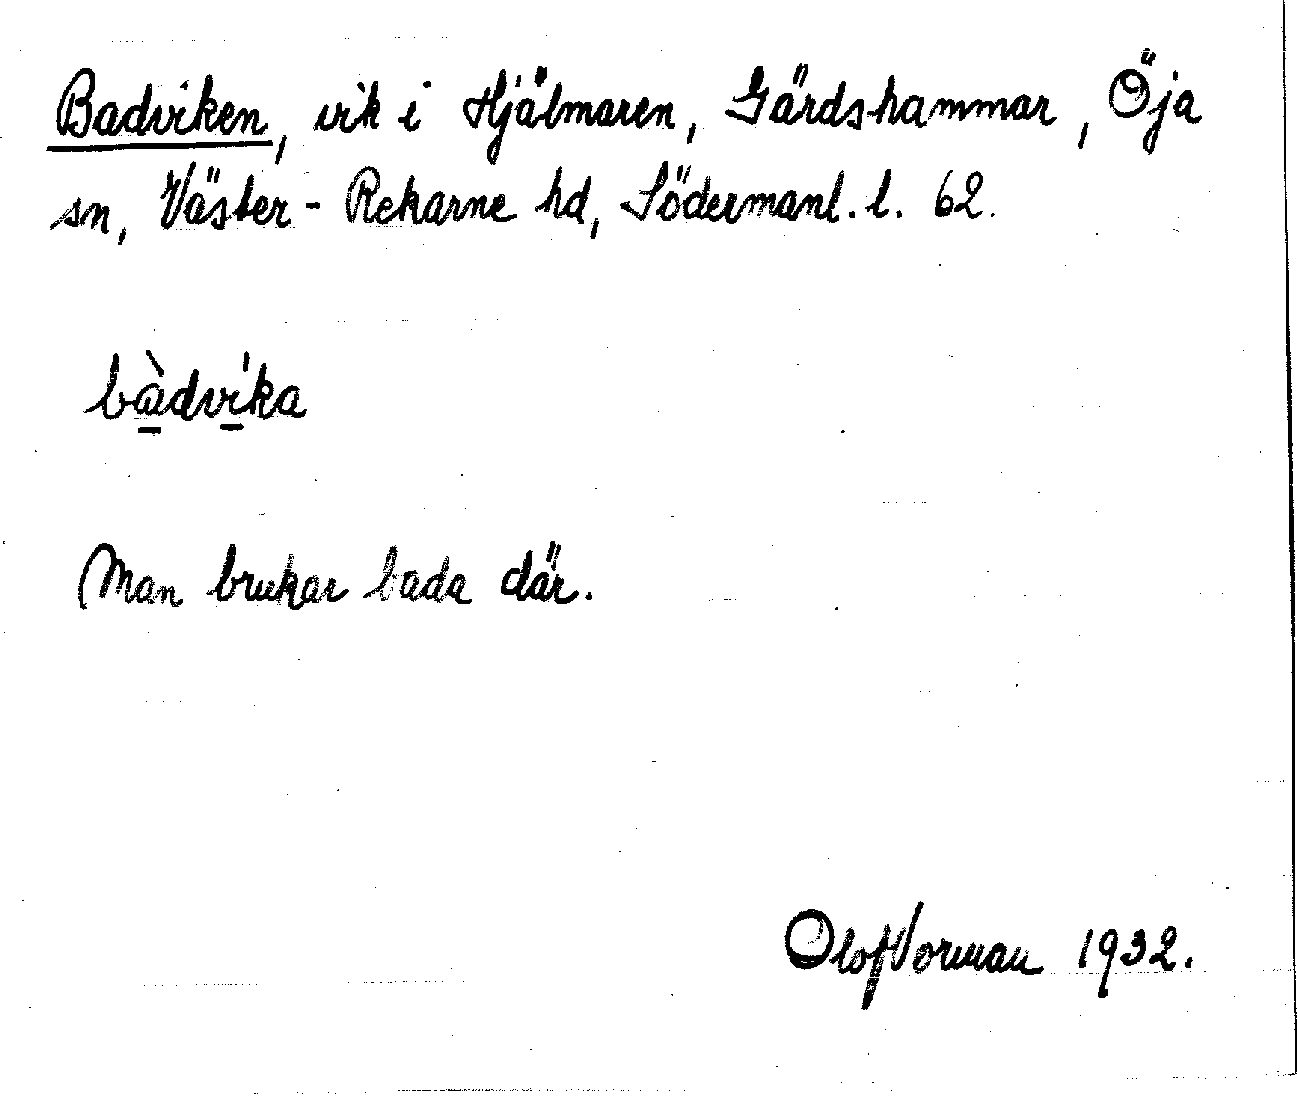 Badviken, vik i Hjälmaren, Gärdshammar, Öja
sn, Väster-Rekarne hd, Södermanl. l. 62.
bàdvíka
Man brukar bada där.
Olof Norman 1932.